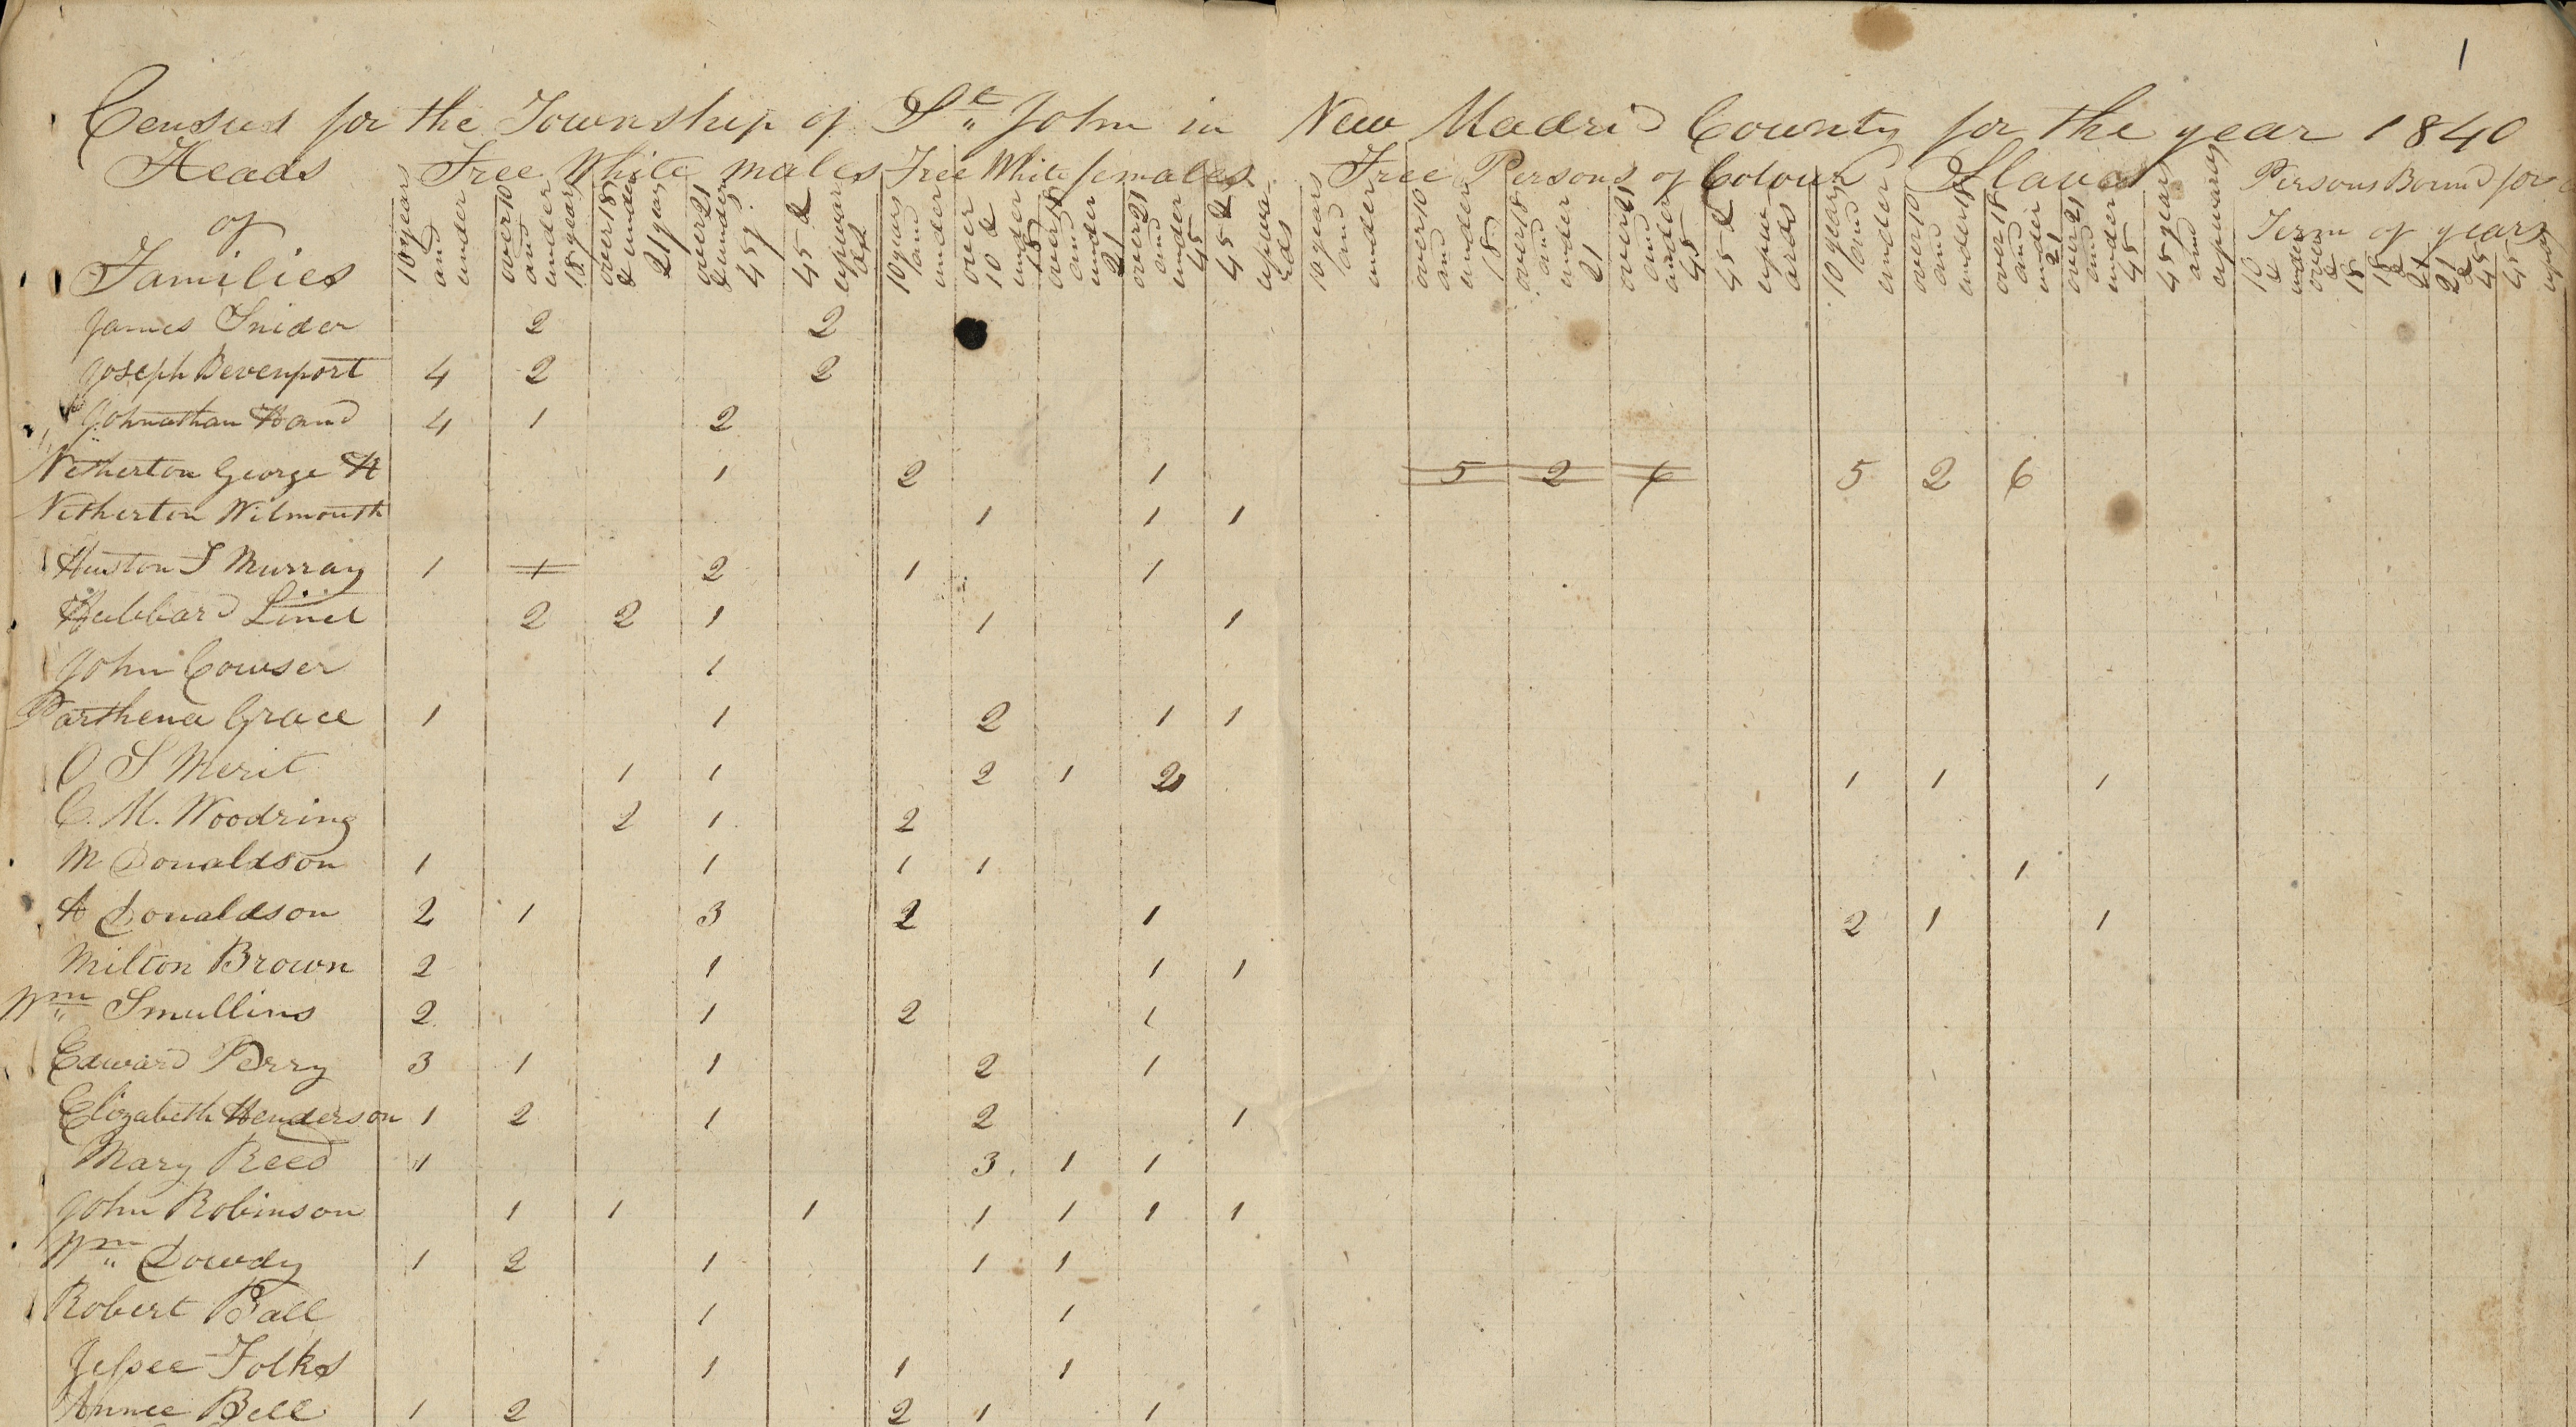 1
Census for the Township of St John in New Madrid County for the year 1840
Heads of Families
Free White males Free White females Free Persons of Colour Slaves Persons Bound for Term of years
10 years and under over 10 and under 18 years over 18 & under 21 years over 21 & under 45 y. 45 & upwards 10 years and under over 10 & under 18 over 18 and under 21 over 21 and under 45 45 & upwards 10 years and under over 10 and under 18 over 18 and under 21 over 21 and under 45 45 & upwards 10 years and under over 10 and under 18 over 18 and under 21 over 21 and under 45 45 years and upwards 10 & under over & 18 18 & 21 21 & 45 45
James Snider 2 2
Joseph Devenport 4 2 2
Johnathan Hand 4 1 2
Netherton George H 1 2 1 5 2 6 5 2 6
Netherton Wilmouth 1 1 1
Huston S Murray 1 1 2 1 1
Hubbard Linel 2 2 1 1 1
John Cowser 1
Parthena Grace 1 1 2 1 1
O S Merit 1 1 2 1 2 1 1 1
C. M. Woodring 2 1 2
M Donaldson 1 1 1 1 1
A Donaldson 2 1 3 2 1 2 1 1
Milton Brown 2 1 1 1
Wm Smullins 2 1 2 1
Edward Perry 3 1 1 2 1
Elizabeth Henderson 1 2 1 2 1
Mary Reed 1 3 1 1
John Robinson 1 1 1 1 1 1 1
Wm Dowdy 1 2 1 1 1
Robert Ball 1 1
Jessee Folks 1 1 1
Annee Bell 1 2 2 1 1